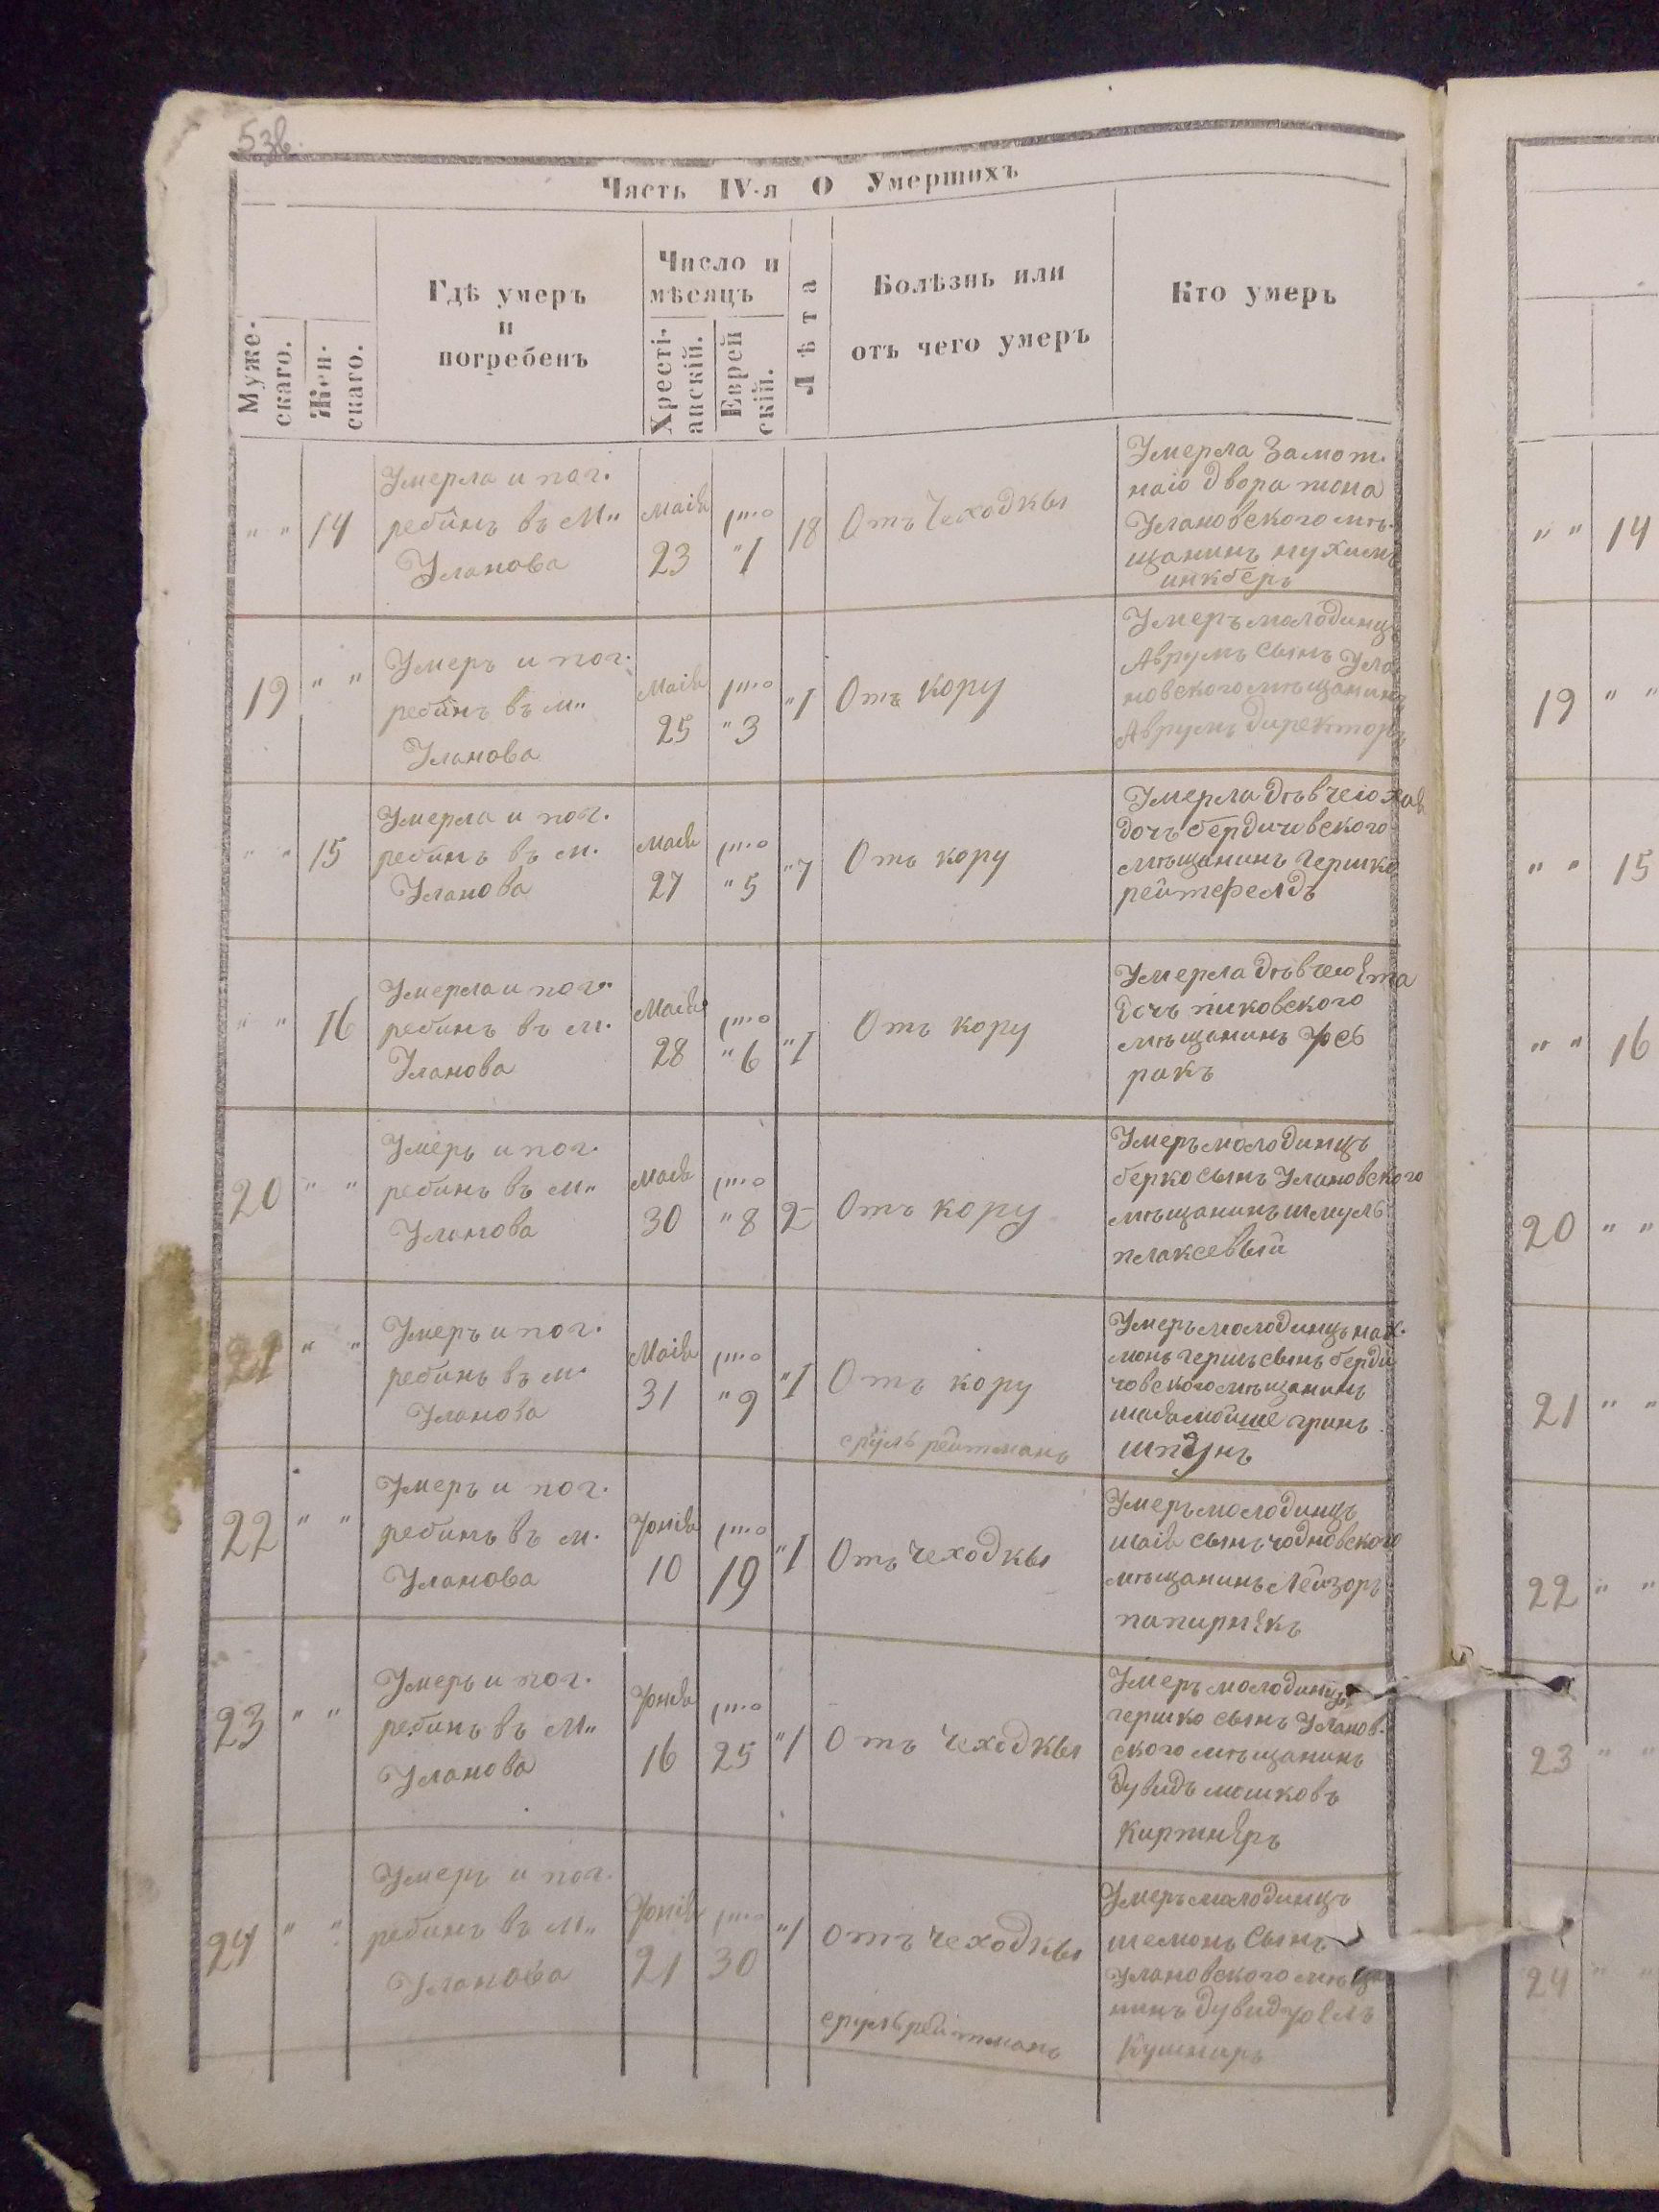 53об.
Часть IV-я О Умершихъ
Муже-
скаго.
Жен-
скаго.
Гдѣ умеръ
и
погребенъ
Число и
мѣсяцъ
Хресті-
анскій.
Еврей
скій.
Лѣта
Болѣзнь или
отъ чего умеръ
Кто умеръ
" "
14
Умерла и пог.
ребинъ въ М"
Уланова
Маія
23
"1
18
Отъ Чеходкы
Умерла Замож.
наіо двора жона
Улановского мѣ.
щанинъ нухимъ
инкберъ
19
" "
Умеръ и пог.
ребинъ въ м"
Уланова
Маія
25
"3
"1
Отъ кору
Умеръ молодинцъ
Аврумъ сынъ Ула
новского мѣщанинъ
Аврумъ директоръ
" "
15
Умерла и пог.
ребинъ въ м.
Уланова
Маія
27
"5
"7
Отъ кору
Умерла дѣвчею хая
дочъ бердичовского
мѣщанинъ гершко
рейтфелдъ
" "
16
Умерла и пог.
ребинъ въ м.
Уланова
Маія
28
"6
"1
Отъ кору
Умерла дѣвчею Ета
дочъ пиковского
мѣщанинъ
ракъ
20
" "
Умеръ и пог.
ребинъ въ м"
Уланова
Маія
30
"8
2
Отъ кору
Умеръ молодинцъ
берко сынъ Улановского
мѣщанинъ шмуль
плаксевый
21
" "
Умеръ и пог.
ребинъ въ м.
Уланова
Маія
31
"9
"1
Отъ кору
сруль рейтманъ
Умеръ молодинцъ нах.
монъ гершъ сынъ берди
човского мѣщанинъ
шая мойше гринъ
шпунъ
22
" "
Умеръ и пог.
ребинъ въ м.
Уланова
Юнія
10
19
"1
Отъ чеходкы
Умеръ молодинцъ
шаія сынъ чодновского
мѣщанинъ Лейзоръ
папирнЕкъ
23
" "
Умеръ и пог.
ребинъ въ М"
Уланова
Юнія
16
25
"1
Отъ чеходкы
Умеръ молодинцъ
гершко сынъ Уланов.
ского мѣщанинъ
Дувидъ мошковъ
КиржнЕръ
24
" "
Умеръ и пог.
ребинъ въ М"
Уланова
Юнія
21
30
"1
Отъ чеходкы
сруль рейтманъ
Умеръ молодинцъ
шемонъ Сынъ
Улановского мѣща
нинъ дувид юЕлъ
Кушниръ
" " 14
19 " "
" " 15
" " 16
20 " "
21 " "
22 " "
23 " "
24 " "